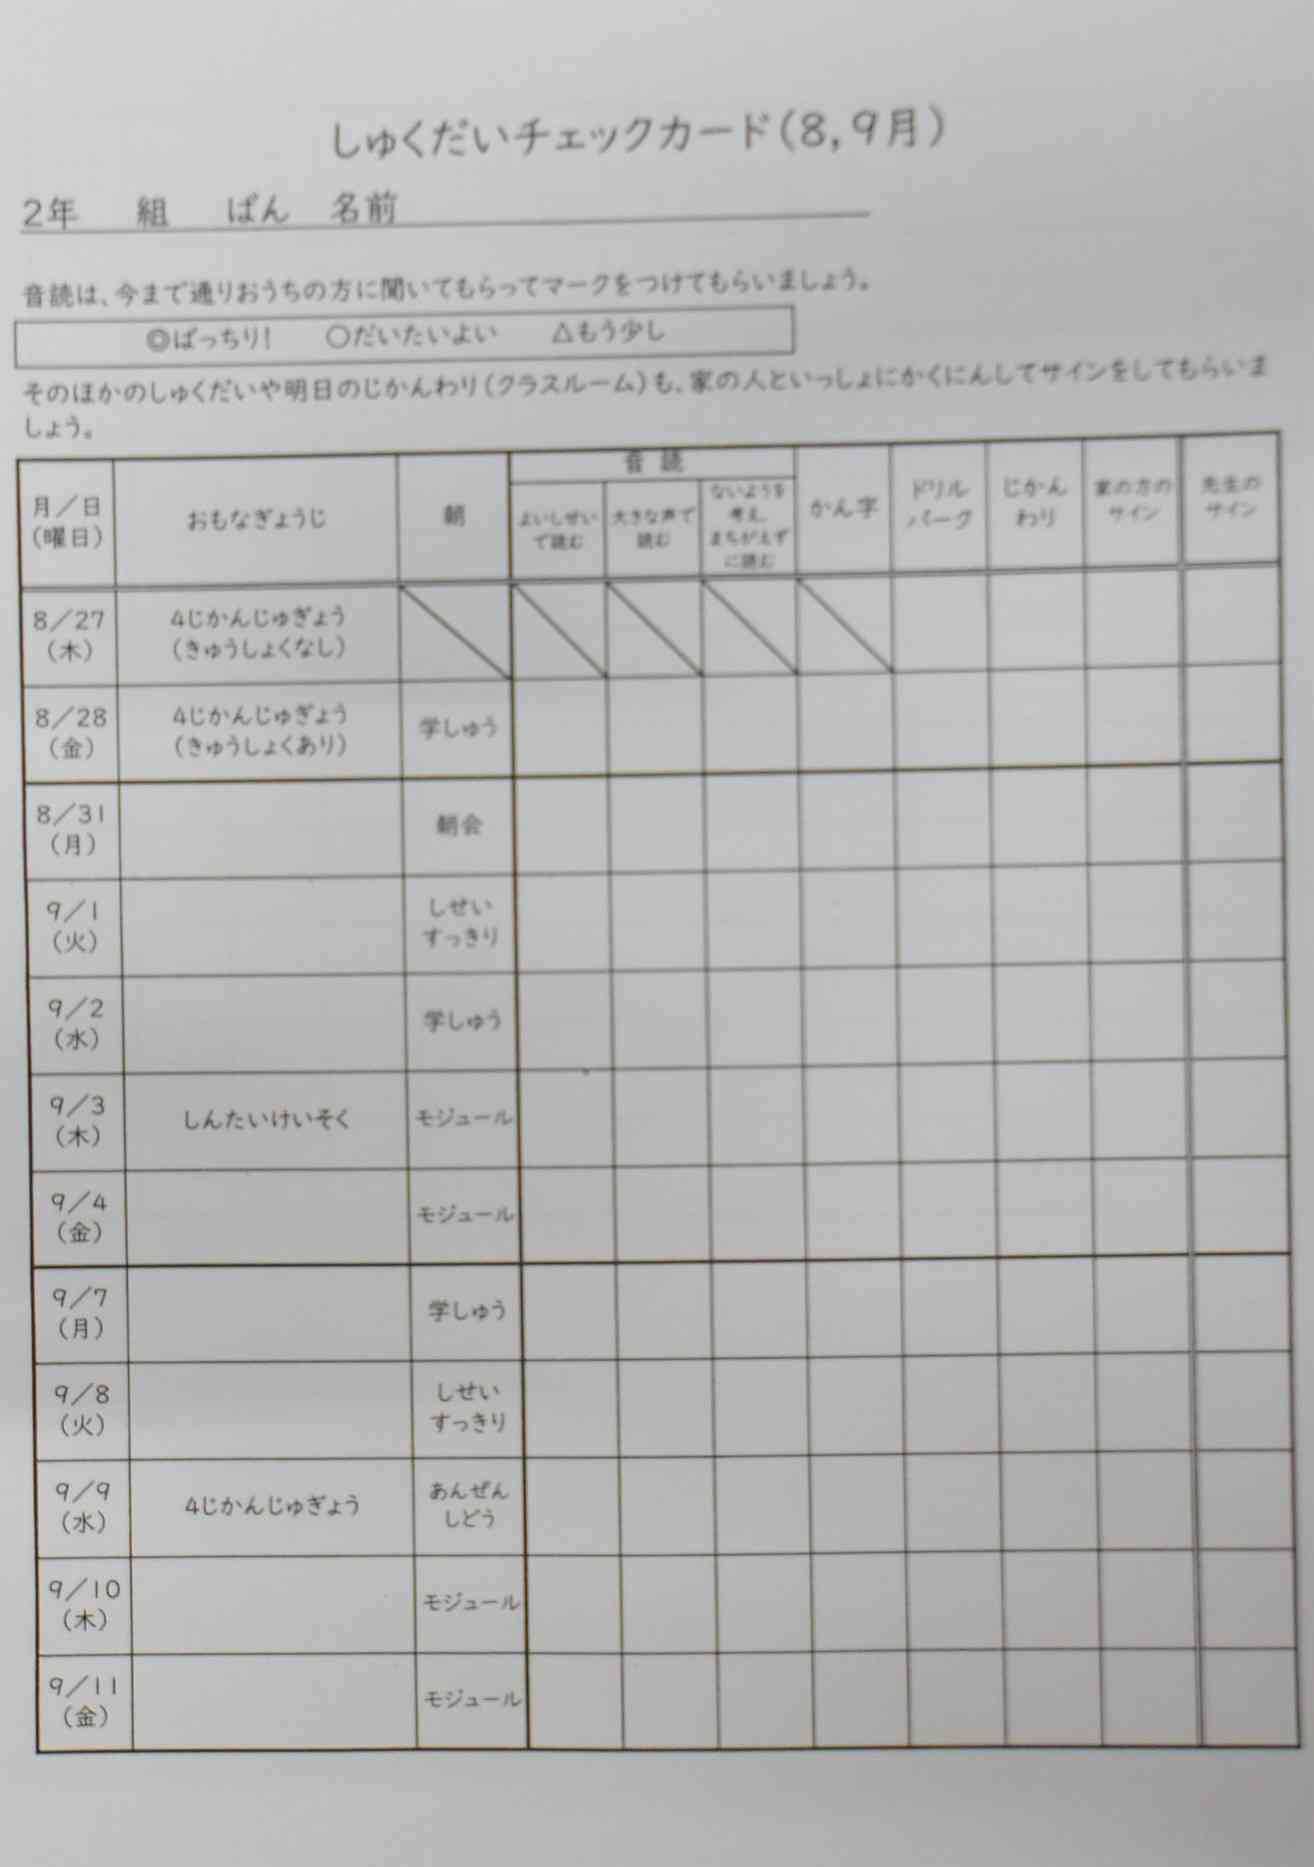 しゅくだいチェックカード(8,9月)
2年　組　ばん　名前
音読は、今まで通りおうちの方に聞いてもらってマークをつけてもらいましょう。
◎ばっちり!　○だいたいよい　△もう少し
そのほかのしゅくだいや明日のじかんわり(クラスルーム)も、家の人といっしょにかくにんしてサインをしてもらいま
しょう。
月/日
(曜日)
おもなぎょうじ
朝
音読
よいしせい
で読む
大きな声で
読む
ないようを
考え、
まちがえず
に読む
かん字
ドリル
パーク
じかん
わり
家の方の
サイン
先生の
サイン
8/27
(木)
4じかんじゅぎょう
(きゅうしょくなし)
8/28
(金)
4じかんじゅぎょう
(きゅうしょくあり)
学しゅう
8/31
(月)
朝会
9/1
(火)
しせい
すっきり
9/2
(水)
学しゅう
9/3
(木)
しんたいけいそく
モジュール
9/4
(金)
モジュール
9/7
(月)
学しゅう
9/8
(火)
しせい
すっきり
9/9
(水)
4じかんじゅぎょう
あんぜん
しどう
9/10
(木)
モジュール
9/11
(金)
モジュール